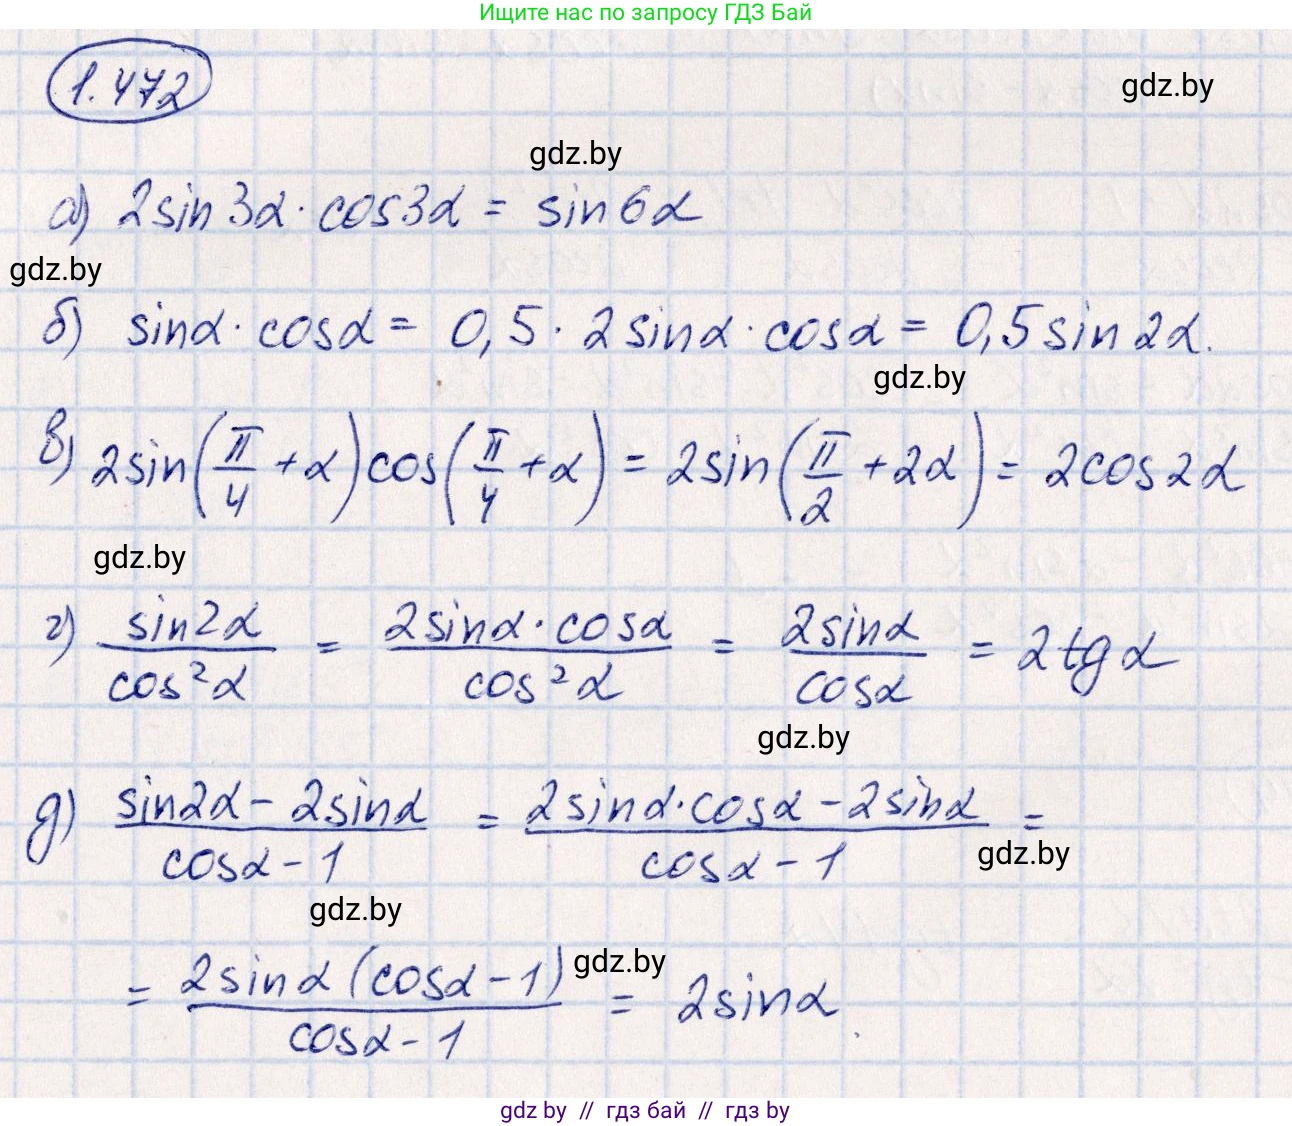 Ищите нас по запросу ГДЗ Бай
1.472
gdz.by
gdz.by
а) 2sin3α · cos3α = sin6α
gdz.by
б) sinα · cosα = 0,5 · 2sinα · cosα = 0,5sin2α.
gdz.by
в) 2sin(π/4 + α)cos(π/4 + α) = 2sin(π/2 + 2α) = 2cos2α
gdz.by
г) sin2α/cos²α = 2sinα·cosα/cos²α = 2sinα/cosα = 2tgα
gdz.by
д) (sin2α – 2sinα)/(cosα – 1) = (2sinα·cosα – 2sinα)/(cosα – 1) =
gdz.by
gdz.by
gdz.by
= 2sinα(cosα – 1)/(cosα – 1) = 2sinα.
gdz by // гдз бай // гдз by